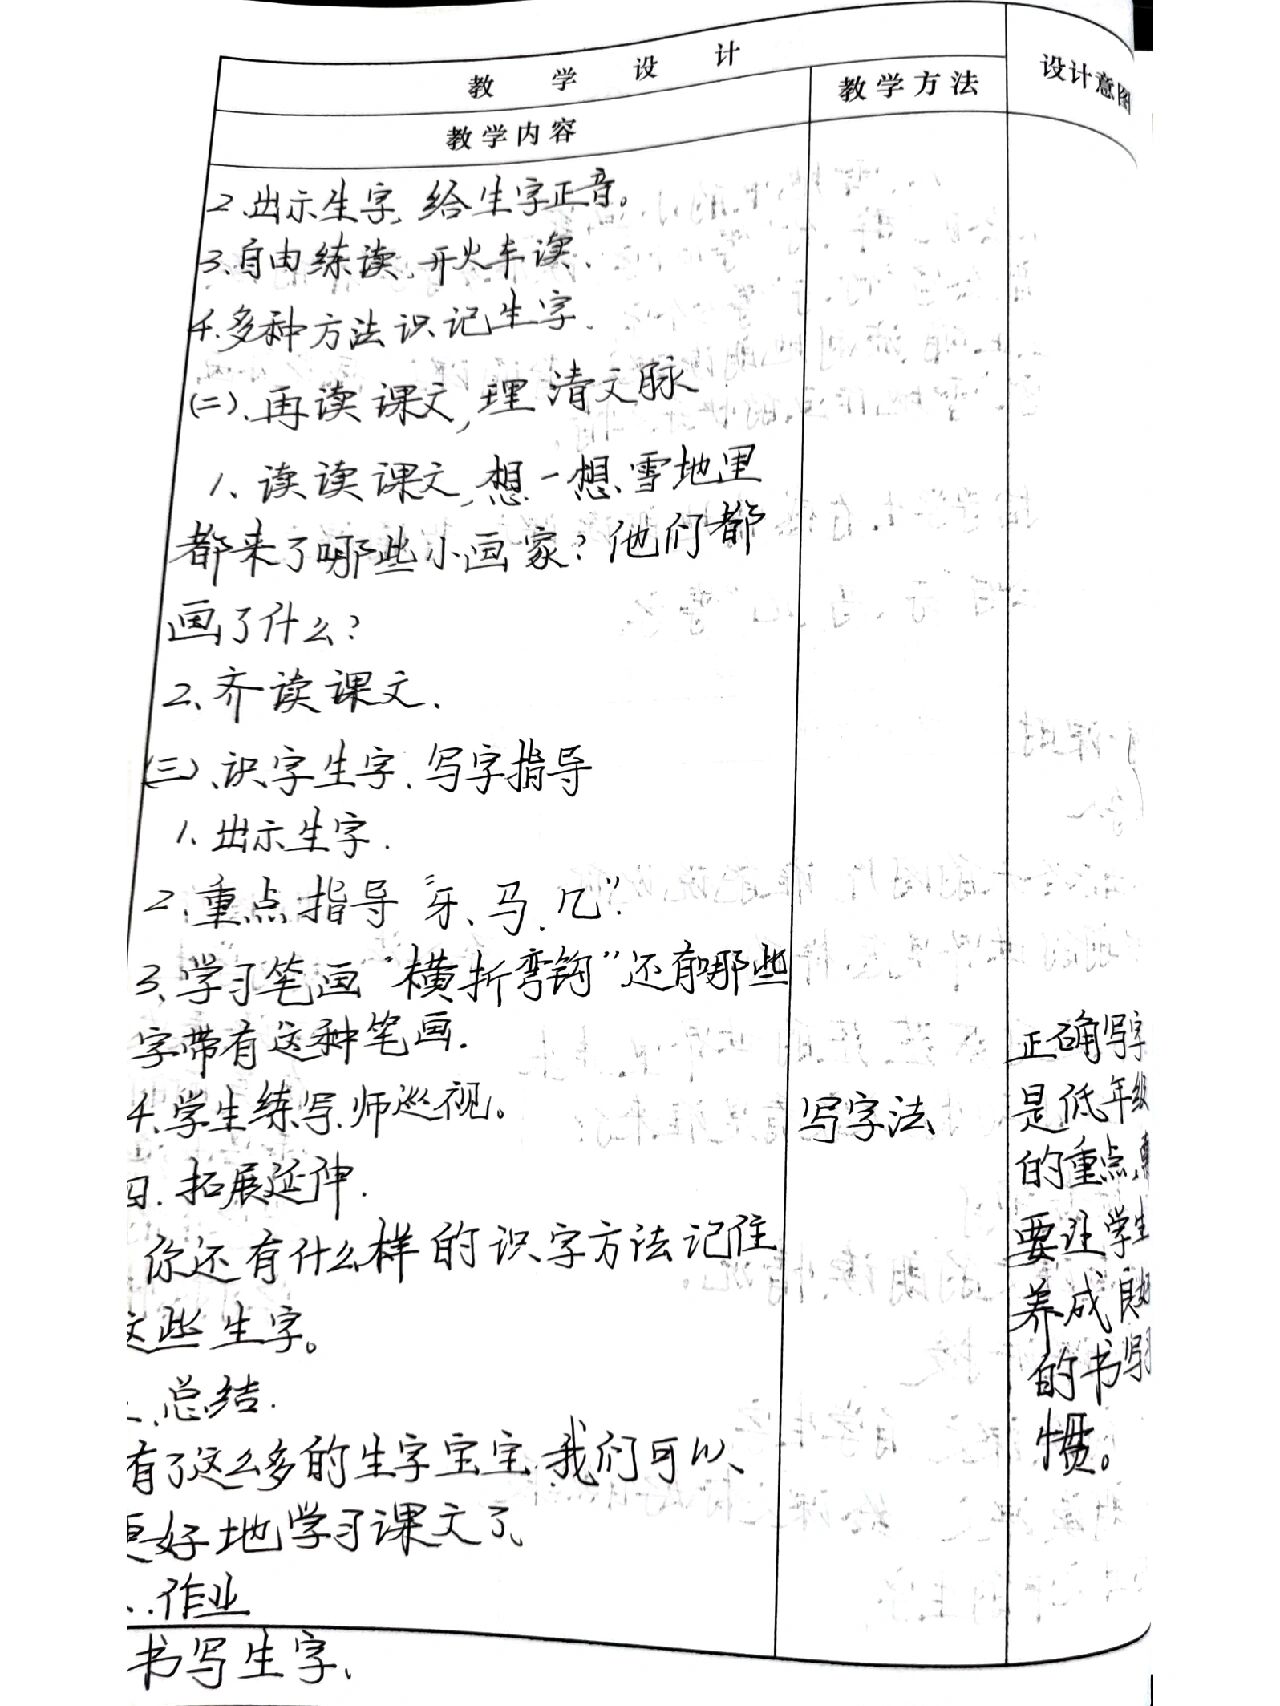 教 学 设 计
教学内容
教学方法
设计意图
2、出示生字,给生字正音。
3、自由练读、开火车读、
4.多种方法识记生字、
(二)、再读课文,理清文脉
1、读读课文,想一想雪地里
都来了哪些小画家?他们都
画了什么?
2、齐读课文、
(三)、识字生字、写字指导
1、出示生字.
2、重点指导“牙、马、几”.
3、学习笔画“横折弯钩”还有哪些
字带有这种笔画.
4、学生练写、师巡视。
四、拓展延伸.
你还有什么样的识字方法记住
这些生字。
、总结.
有了这么多的生字宝宝、我们可以、
更好地学习课文了、
、作业
书写生字、
写字法
正确写字
是低年级
的重点,
要让学生
养成良好
的书写习
惯。